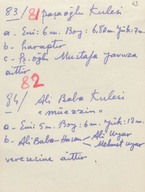 83/81 paşaoğlu Kulesi
a - Eni: 6m. Boy: 6.8m Yük: 7m.
b - haraptır
c - Pş.oğlu Mustafa Yavuza
aittir
82
84/ Ali Baba Kulesi
— "müezzin"
a - Eni 5m. Boy: 6m Yük: 12m
b - Ali Baba Hasan - Ali uyar
Mehmet uyar
veresesine aittir.